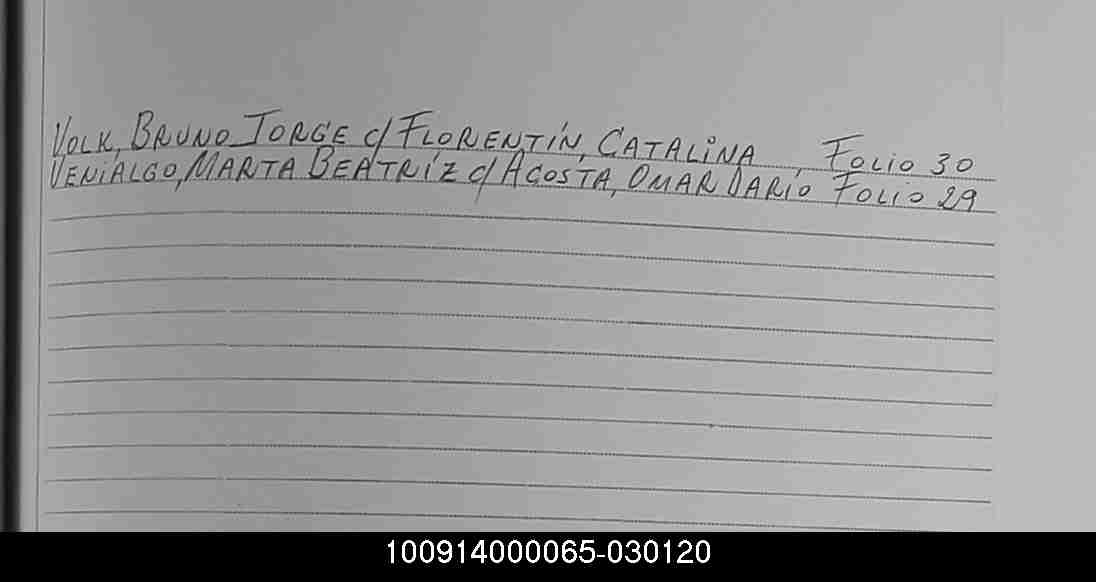 VOLK, BRUNO JORGE c/ FLORENTÍN, CATALINA, FOLIO 30
VENIALGO, MARTA BEATRÍZ c/ ACOSTA, OMAR DARÍO FOLIO 29
100914000065-030120